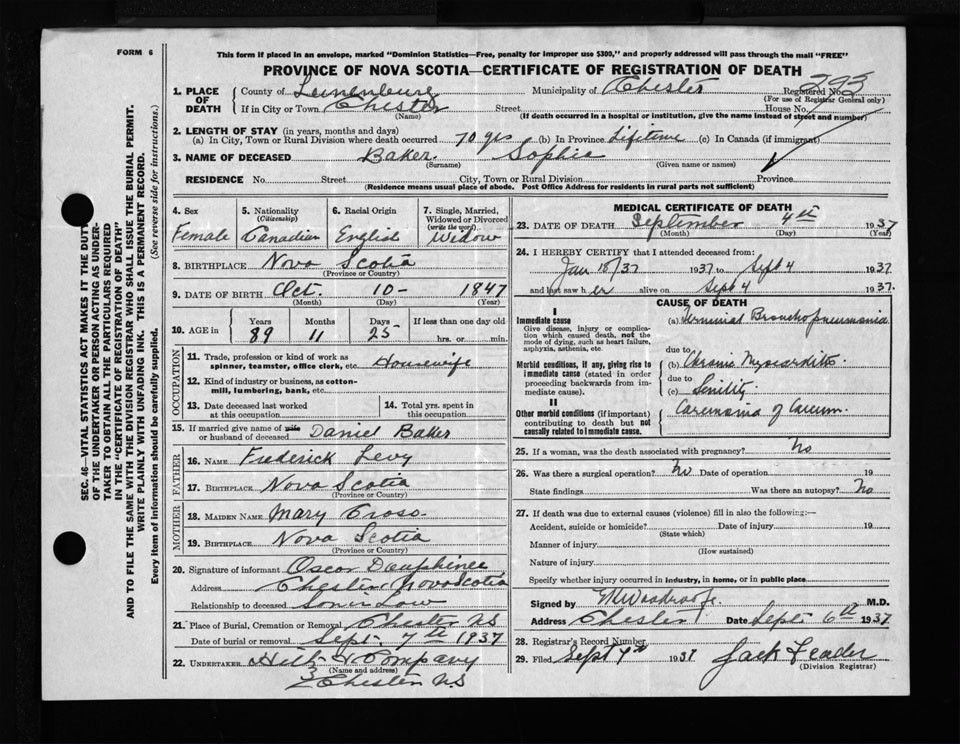 FORM 6
This form if placed in an envelope, marked "Dominion Statistics—Free, penalty for improper use $300," and properly addressed will pass through the mail "FREE"
PROVINCE OF NOVA SCOTIA—CERTIFICATE OF REGISTRATION OF DEATH
SEC. 46—VITAL STATISTICS ACT MAKES IT THE DUTY
OF THE UNDERTAKER OR PERSON ACTING AS UNDER-
TAKER TO OBTAIN ALL THE PARTICULARS REQUIRED
IN THE "CERTIFICATE OF REGISTRATION OF DEATH"
AND TO FILE THE SAME WITH THE DIVISION REGISTRAR WHO SHALL ISSUE THE BURIAL PERMIT.
WRITE PLAINLY WITH UNFADING INK. THIS IS A PERMANENT RECORD.
Every item of information should be carefully supplied. (See reverse side for Instructions.)
1. PLACE OF DEATH
County of Lunenburg Municipality of Chester Registered No. 293
(For use of Registrar General only)
If in City or Town Chester Street House No.
(Name) (If death occurred in a hospital or institution, give the name instead of street and number)
2. LENGTH OF STAY (in years, months and days)
(a) In City, Town or Rural Division where death occurred 70 yrs (b) In Province Lifetime (c) In Canada (if immigrant)
3. NAME OF DECEASED Baker. Sophie
(Surname) (Given name or names)
RESIDENCE No. Street City, Town or Rural Division Province
(Residence means usual place of abode. Post Office Address for residents in rural parts not sufficient)
4. Sex Female
5. Nationality (Citizenship) Canadian
6. Racial Origin English
7. Single, Married, Widowed or Divorced (write the word) Widow
8. BIRTHPLACE Nova Scotia
(Province or Country)
9. DATE OF BIRTH Oct. 10- 1847
(Month) (Day) (Year)
10. AGE in Years Months Days If less than one day old
89 11 25 hrs. or min.
OCCUPATION
11. Trade, profession or kind of work as spinner, teamster, office clerk, etc. Housewife
12. Kind of industry or business, as cotton-mill, lumbering, bank, etc.
13. Date deceased last worked at this occupation
14. Total yrs. spent in this occupation
15. If married give name of wife or husband of deceased Daniel Baker
FATHER
16. NAME Frederick Levy
17. BIRTHPLACE Nova Scotia
(Province or Country)
MOTHER
18. MAIDEN NAME Mary Cross
19. BIRTHPLACE Nova Scotia
(Province or Country)
20. Signature of informant Oscar Dauphinee
Address Chester Nova Scotia
Relationship to deceased Son in Law
21. Place of Burial, Cremation or Removal Chester NS
Date of burial or removal Sept. 7th 1937
22. UNDERTAKER Hilt & Company
(Name and address)
Chester N.S
MEDICAL CERTIFICATE OF DEATH
23. DATE OF DEATH September 4th 1937
(Month) (Day) (Year)
24. I HEREBY CERTIFY that I attended deceased from:
Jan 18/37 1937 to Sept 4 1937
and last saw her alive on Sept 4 1937.
CAUSE OF DEATH
I
Immediate cause
Give disease, injury or complication which caused death, not the mode of dying, such as heart failure, asphyxia, asthenia, etc.
(a) Terminal Bronchopneumonia
due to
Morbid conditions, if any, giving rise to immediate cause (stated in order proceeding backwards from immediate cause).
(b) Chronic Myocarditis
due to
(c) Senility
II
Other morbid conditions (if important) contributing to death but not causally related to immediate cause.
Carcinoma of Caecum.
25. If a woman, was the death associated with pregnancy? No
26. Was there a surgical operation? No Date of operation 19
State findings Was there an autopsy? No
27. If death was due to external causes (violence) fill in also the following:—
Accident, suicide or homicide? Date of injury 19
(State which)
Manner of injury
(How sustained)
Nature of injury
Specify whether injury occurred in industry, in home, or in public place
Signed by M.D.
Address Chester Date Sept 6th 1937
28. Registrar's Record Number
29. Filed Sept 7th 1937 Jack Leader
(Division Registrar)